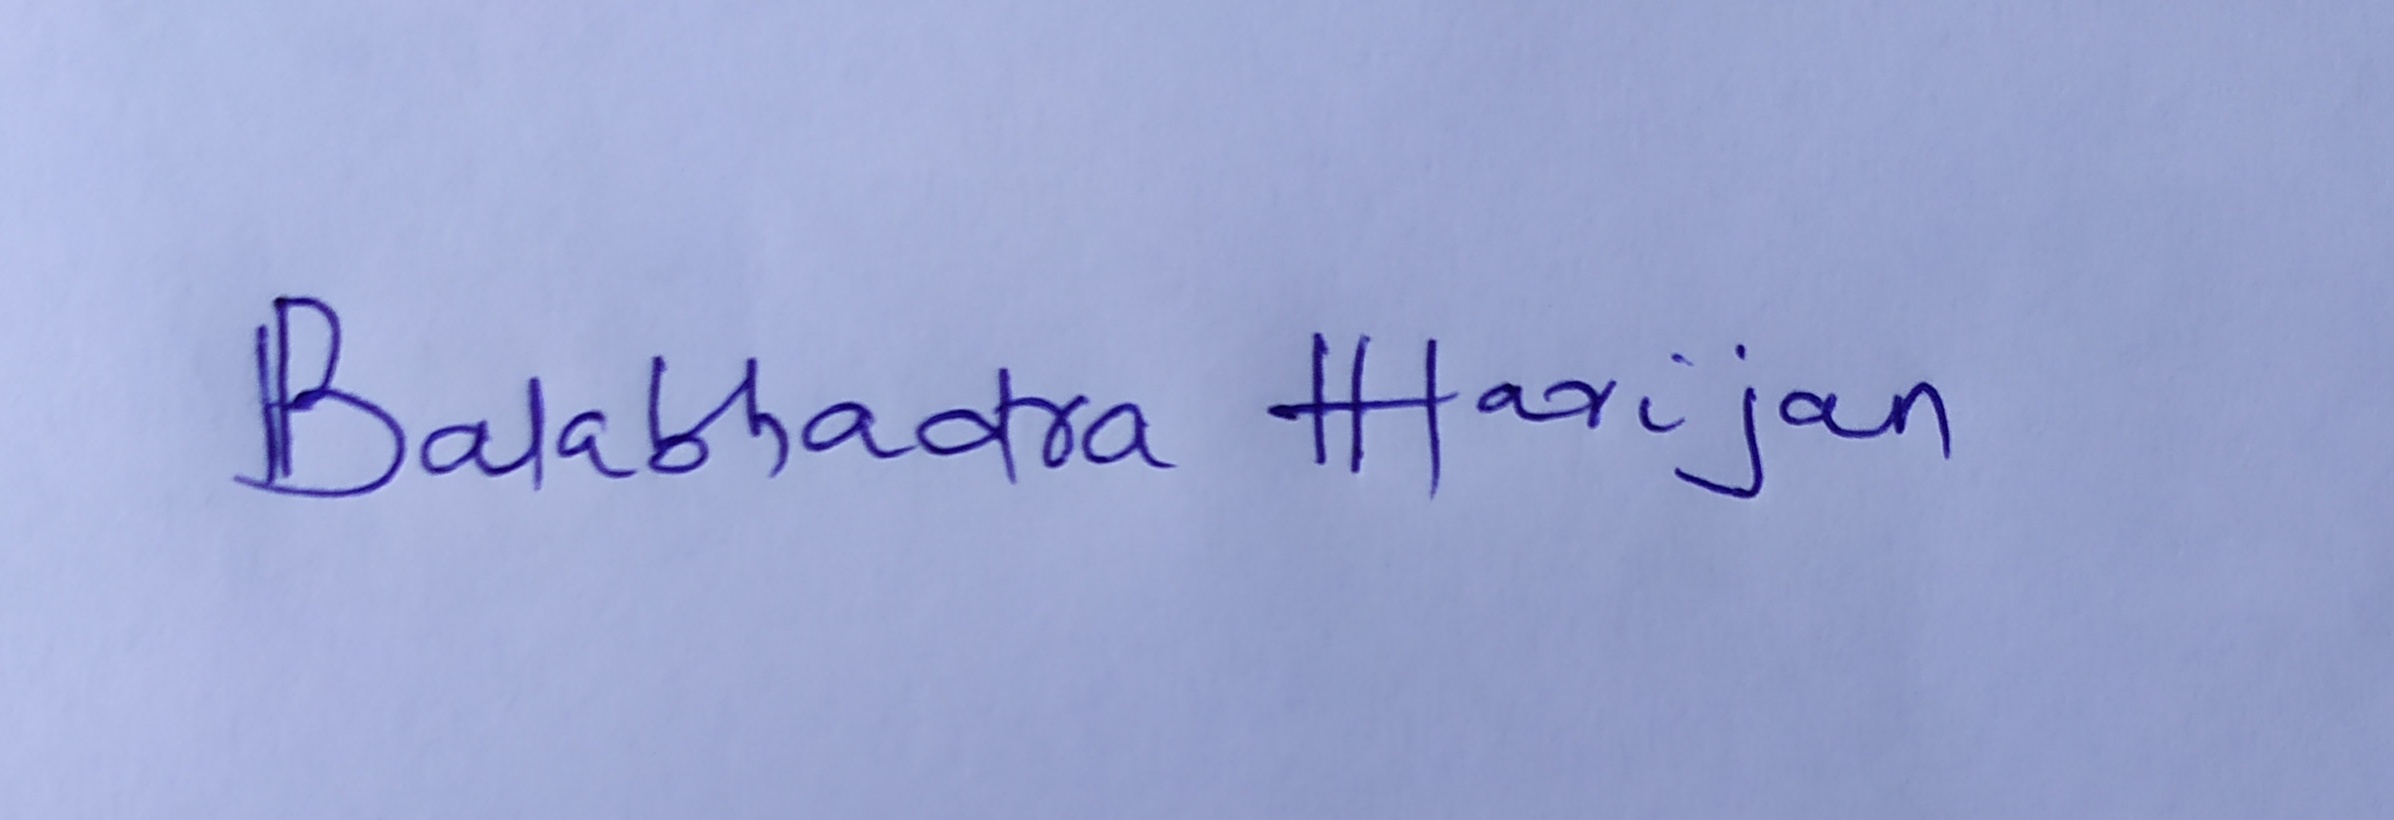 Balabhadra Harijan